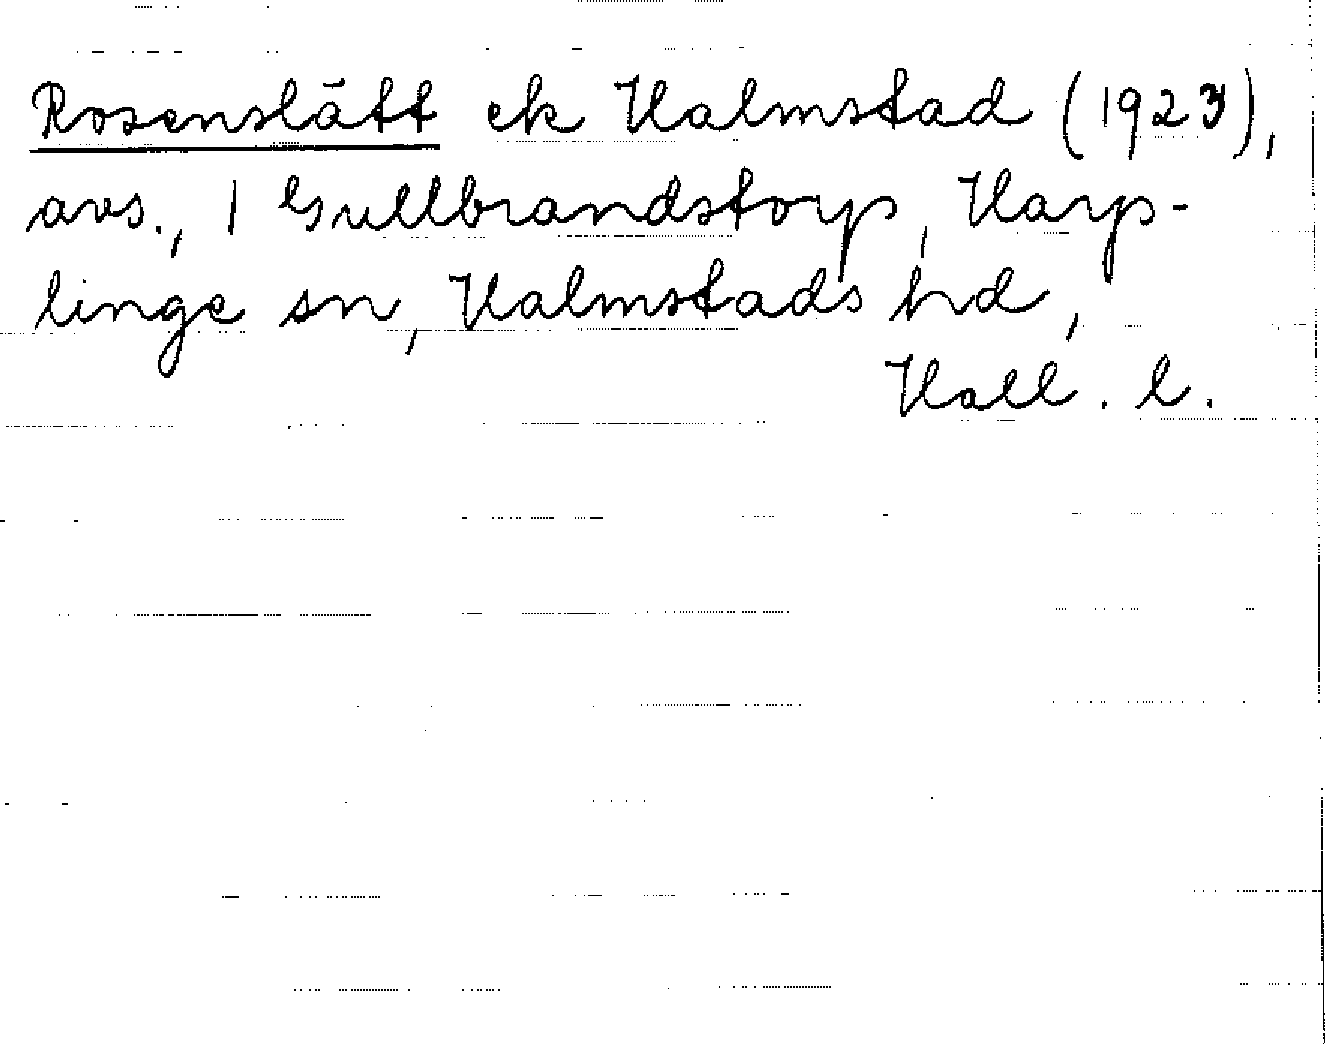 Rosenslätt ek Halmstad (1923),
avs., 1 Gullbrandstorp, Harp-
linge sn, Halmstads hd,
Hall. l.